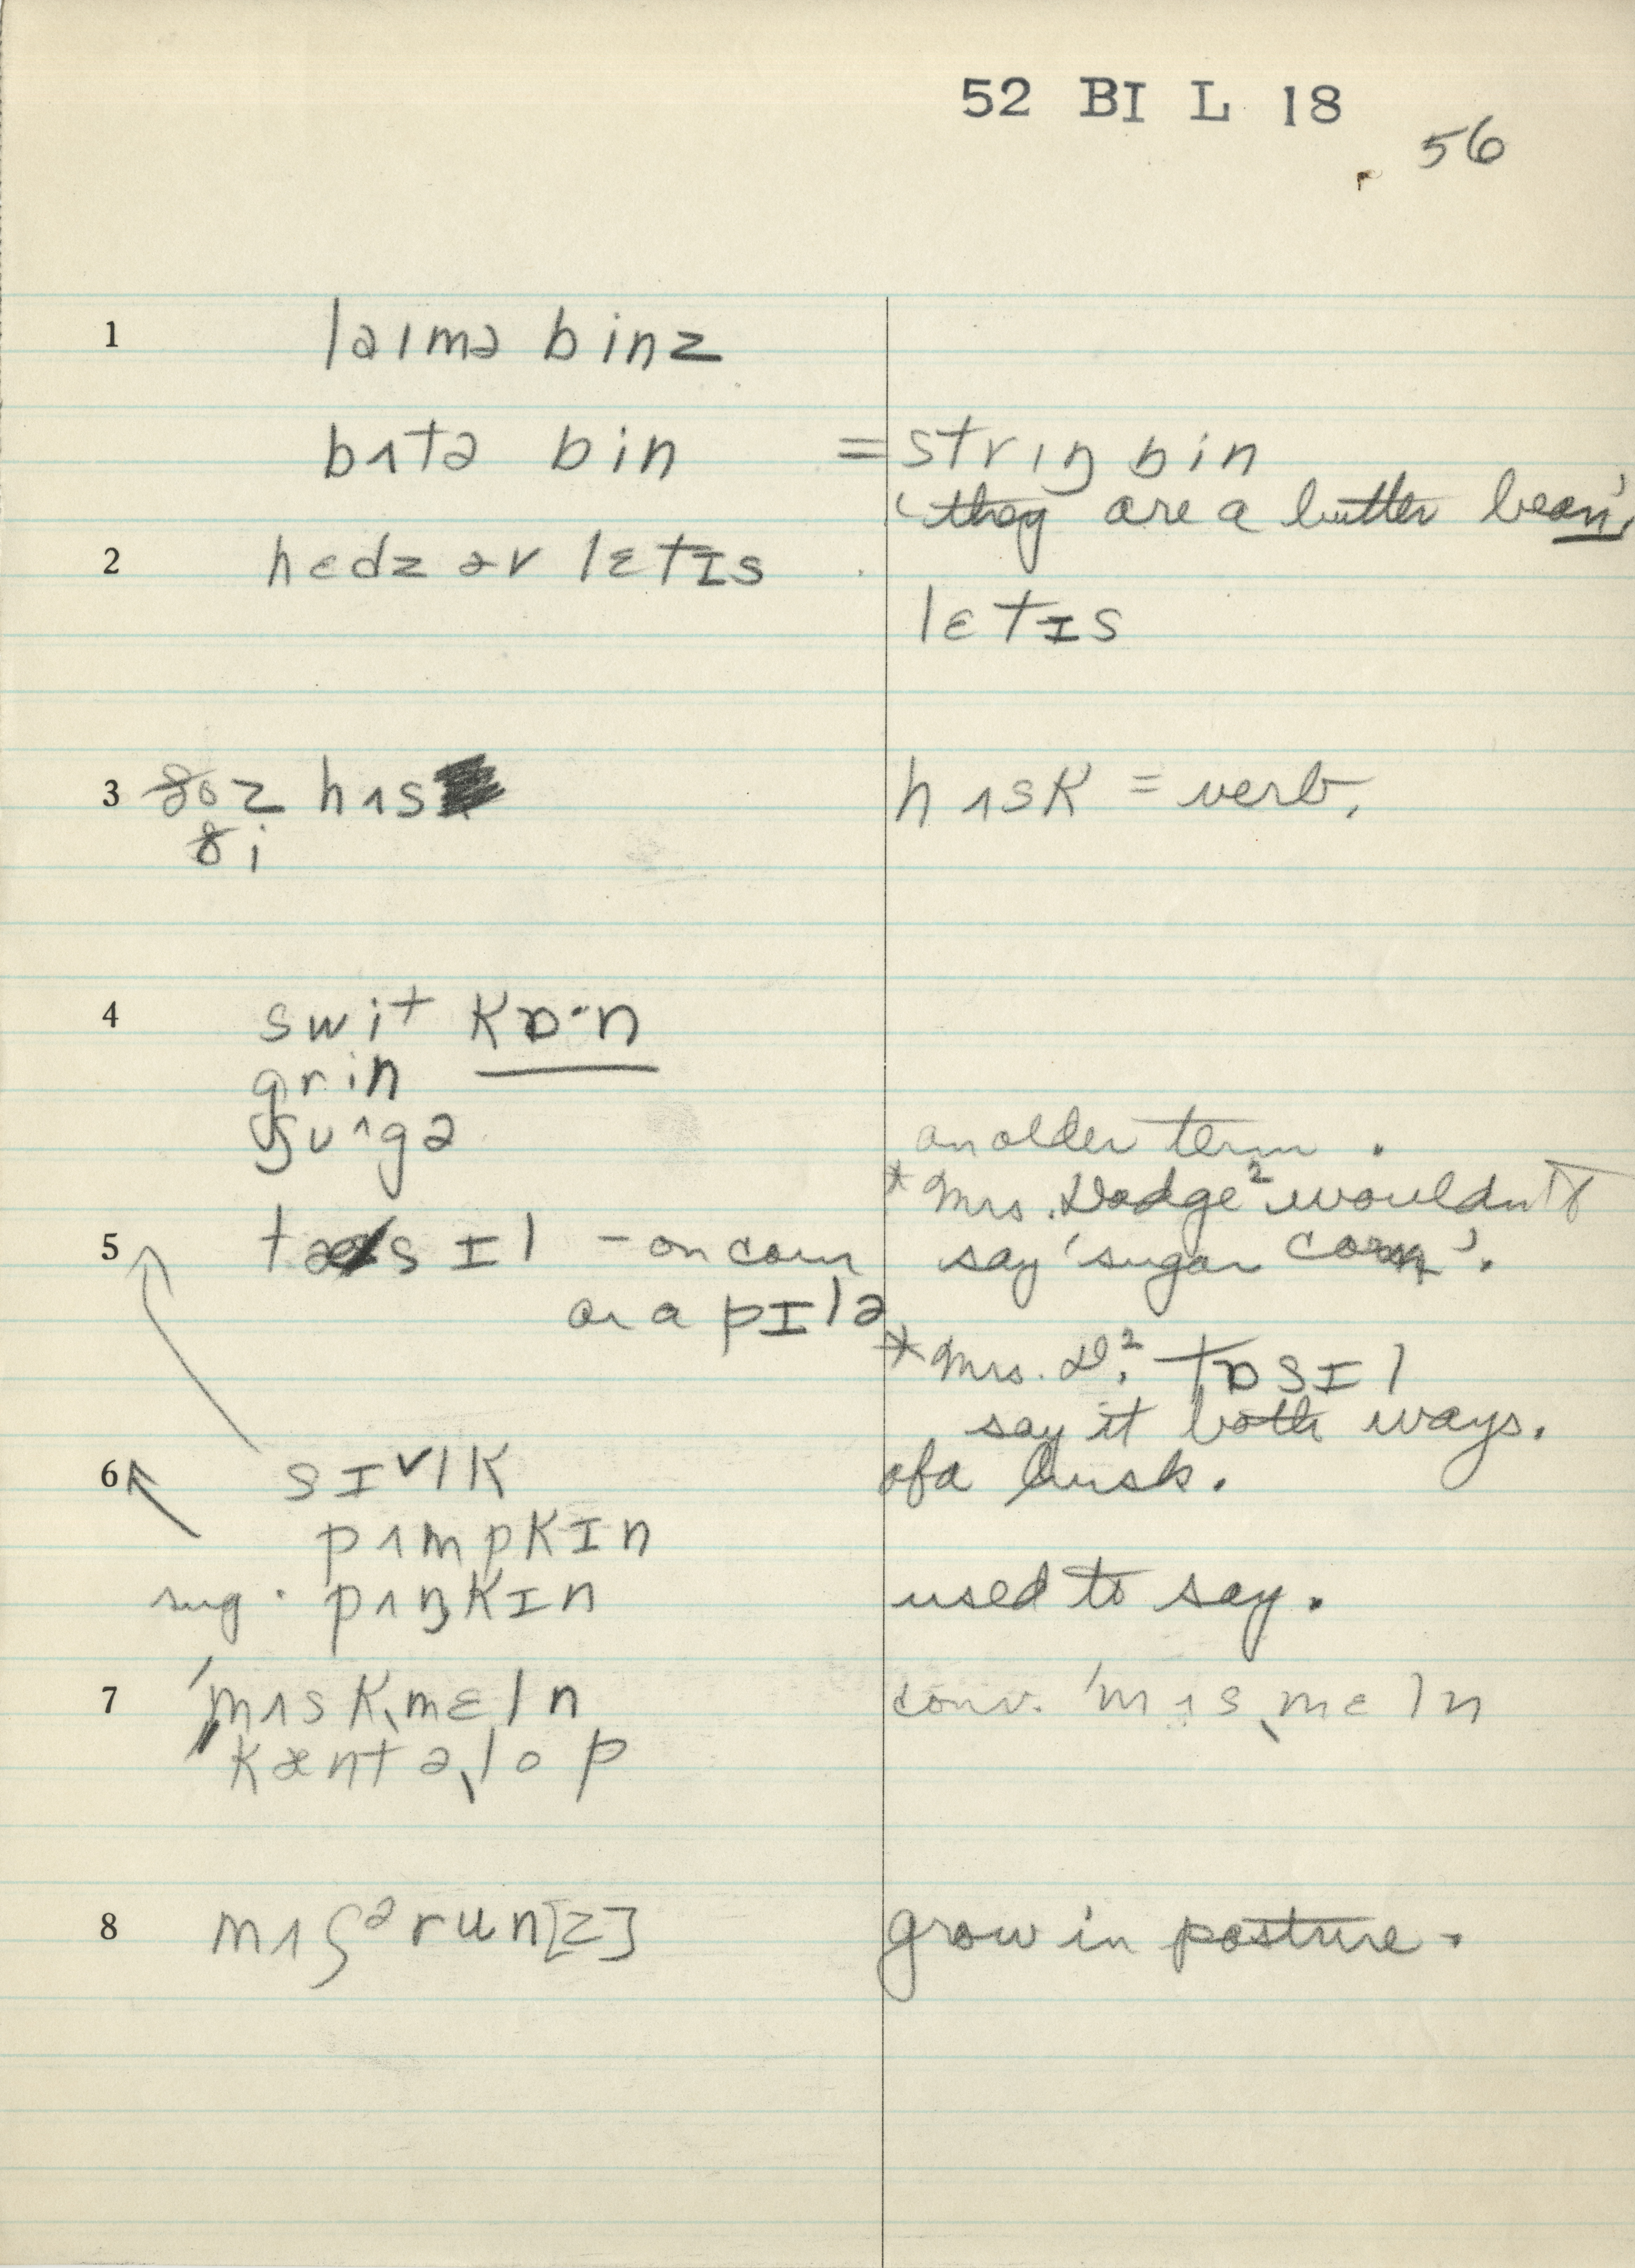 52 BI L 18
56
1 laɪmə binz
bʌtə bin = strɪŋ bin
'they are a butter bean',
2 hɛdz əv lɛtɪs
lɛtɪs
3 ðoz hʌs hʌsk = verb.
ði
4 swit kɒ·n
grin
ʃʊgə an older term.
* Mrs. Dodge² wouldn't
5 tasɪl – on corn say 'sugar corn'.
or a pɪlə
* Mrs. D.² tɒsɪl
say it both ways.
6 sɪlk of a husk.
pʌmpkɪn
sug. pʌŋkɪn used to say.
7 ˈmʌskˌmɛln conv. ˈmʌsˌmɛln
ˈkæntəˌlop
8 mʌʃərun[z] grow in pasture.